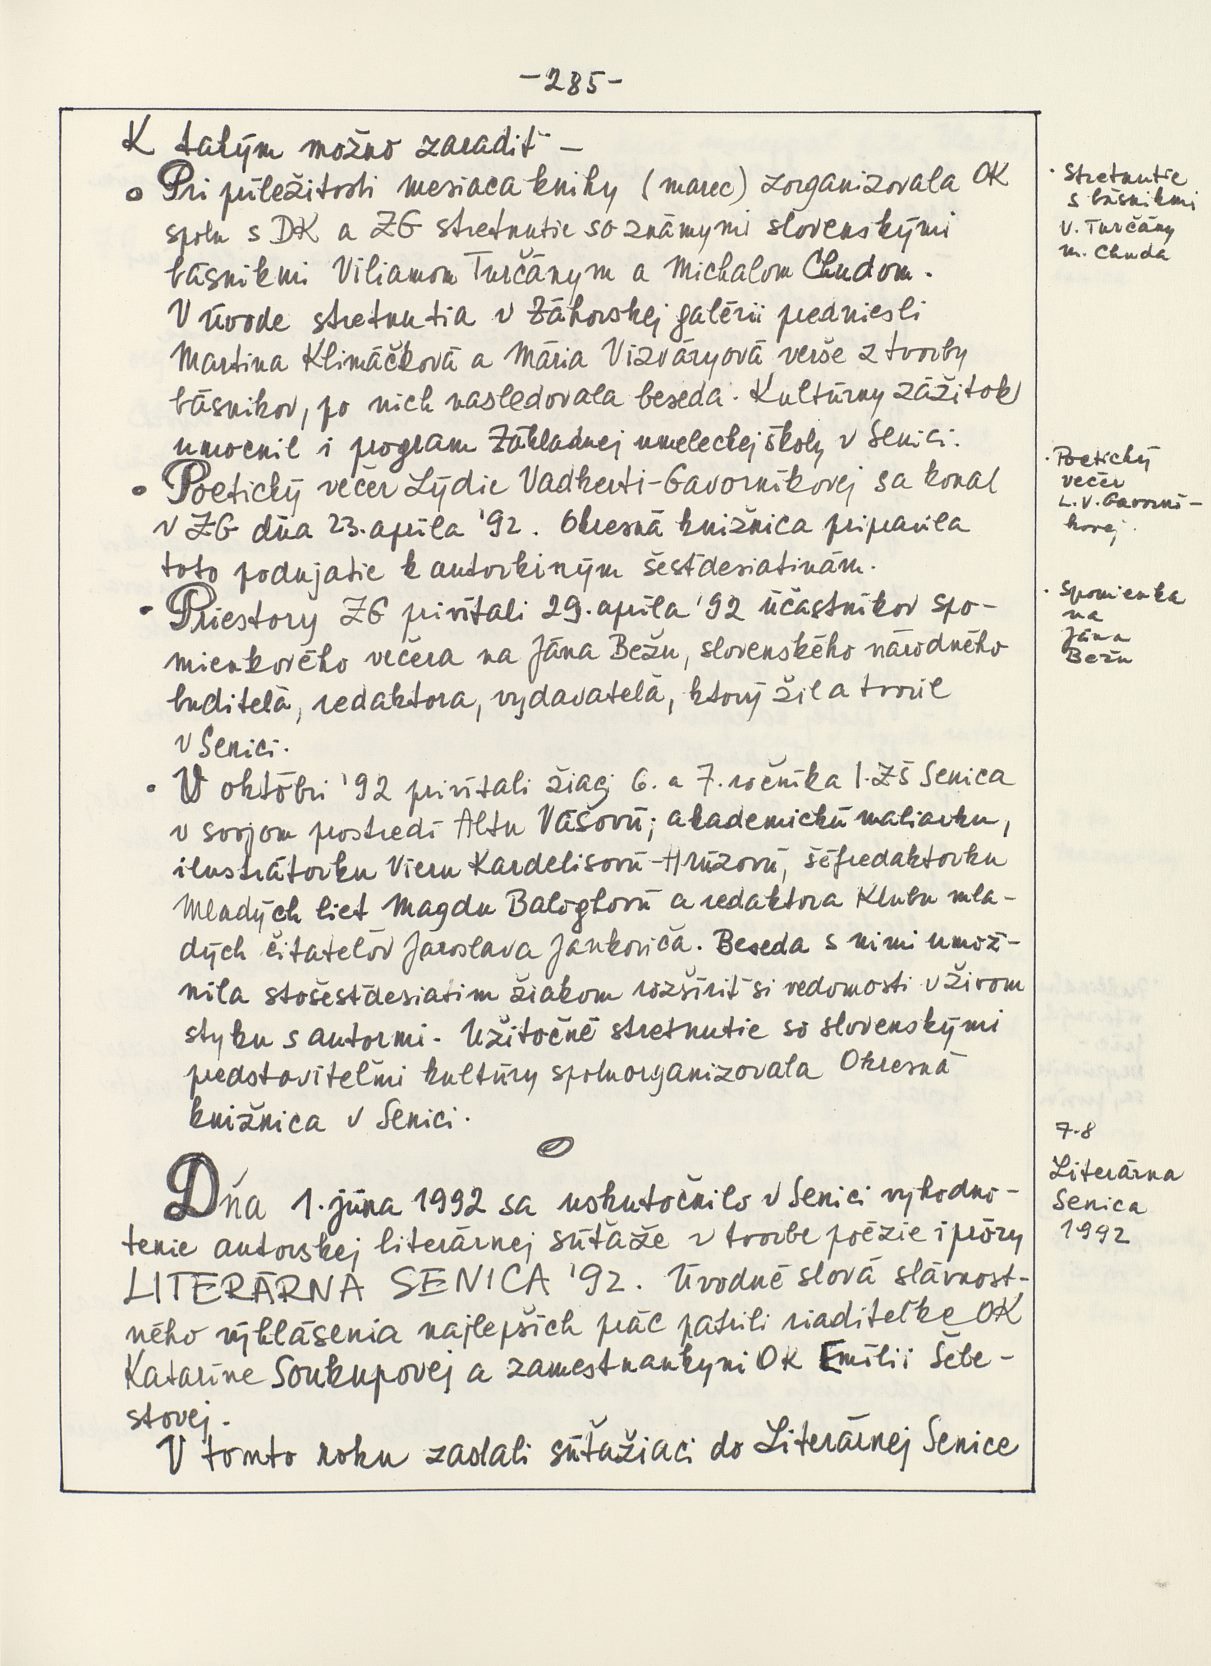 -285-
K takým možno zaradiť -
Pri príležitosti mesiaca knihy (marec) zorganizovala OK
spolu s DK a ZG stretnutie so známymi slovenskými
básnikmi Viliamom Turčánym a Michalom Chudom.
V úvode stretnutia v Záhorskej galérii predniesli
Martina Klimáčková a Mária Vizváryová verše z tvorby
básnikov, po nich nasledovala beseda. Kultúrny zážitok
umocnil i program Základnej umeleckej školy v Senici.
Poetický večer Lýdie Vadkerti-Gavorníkovej sa konal
v ZG dňa 23. apríla '92. Okresná knižnica pripravila
toto podujatie k autorkiným šesťdesiatinám.
Priestory ZG privítali 29. apríla '92 účastníkov spo-
mienkového večera na Jána Bežu, slovenského národného
buditeľa, redaktora, vydavateľa, ktorý žil a tvoril
v Senici.
V októbri '92 privítali žiaci 6. a 7. ročníka I. ZŠ Senica
v svojom prostredí Altu Vášovú; akademickú maliarku,
ilustrátorku Vieru Kardelisovú-Hrúzovú, šéfredaktorku
Mladých liet Magdu Baloghovú a redaktora Klubu mla-
dých čitateľov Jaroslava Jankoviča. Beseda s nimi umož-
nila stošesťdesiatim žiakom rozšíriť si vedomosti v živom
styku s autormi. Užitočné stretnutie so slovenskými
predstaviteľmi kultúry spoluorganizovala Okresná
knižnica v Senici.
Dňa 1. júna 1992 sa uskutočnilo v Senici vyhodno-
tenie autorskej literárnej súťaže v tvorbe poézie i prózy
LITERÁRNA SENICA '92. Úvodné slová slávnost-
ného vyhlásenia najlepších prác patrili riaditeľke OK
Kataríne Soukupovej a zamestnankyni OK Emílii Šebe-
stovej.
V tomto roku zaslali súťažiaci do Literárnej Senice
· Stretnutie
s básnikmi
V. Turčány
M. Chuda
· Poetický
večer
L. V. Gavorní-
kovej
· Spomienka
na
Jána
Bežu
7-8
Literárna
Senica
1992